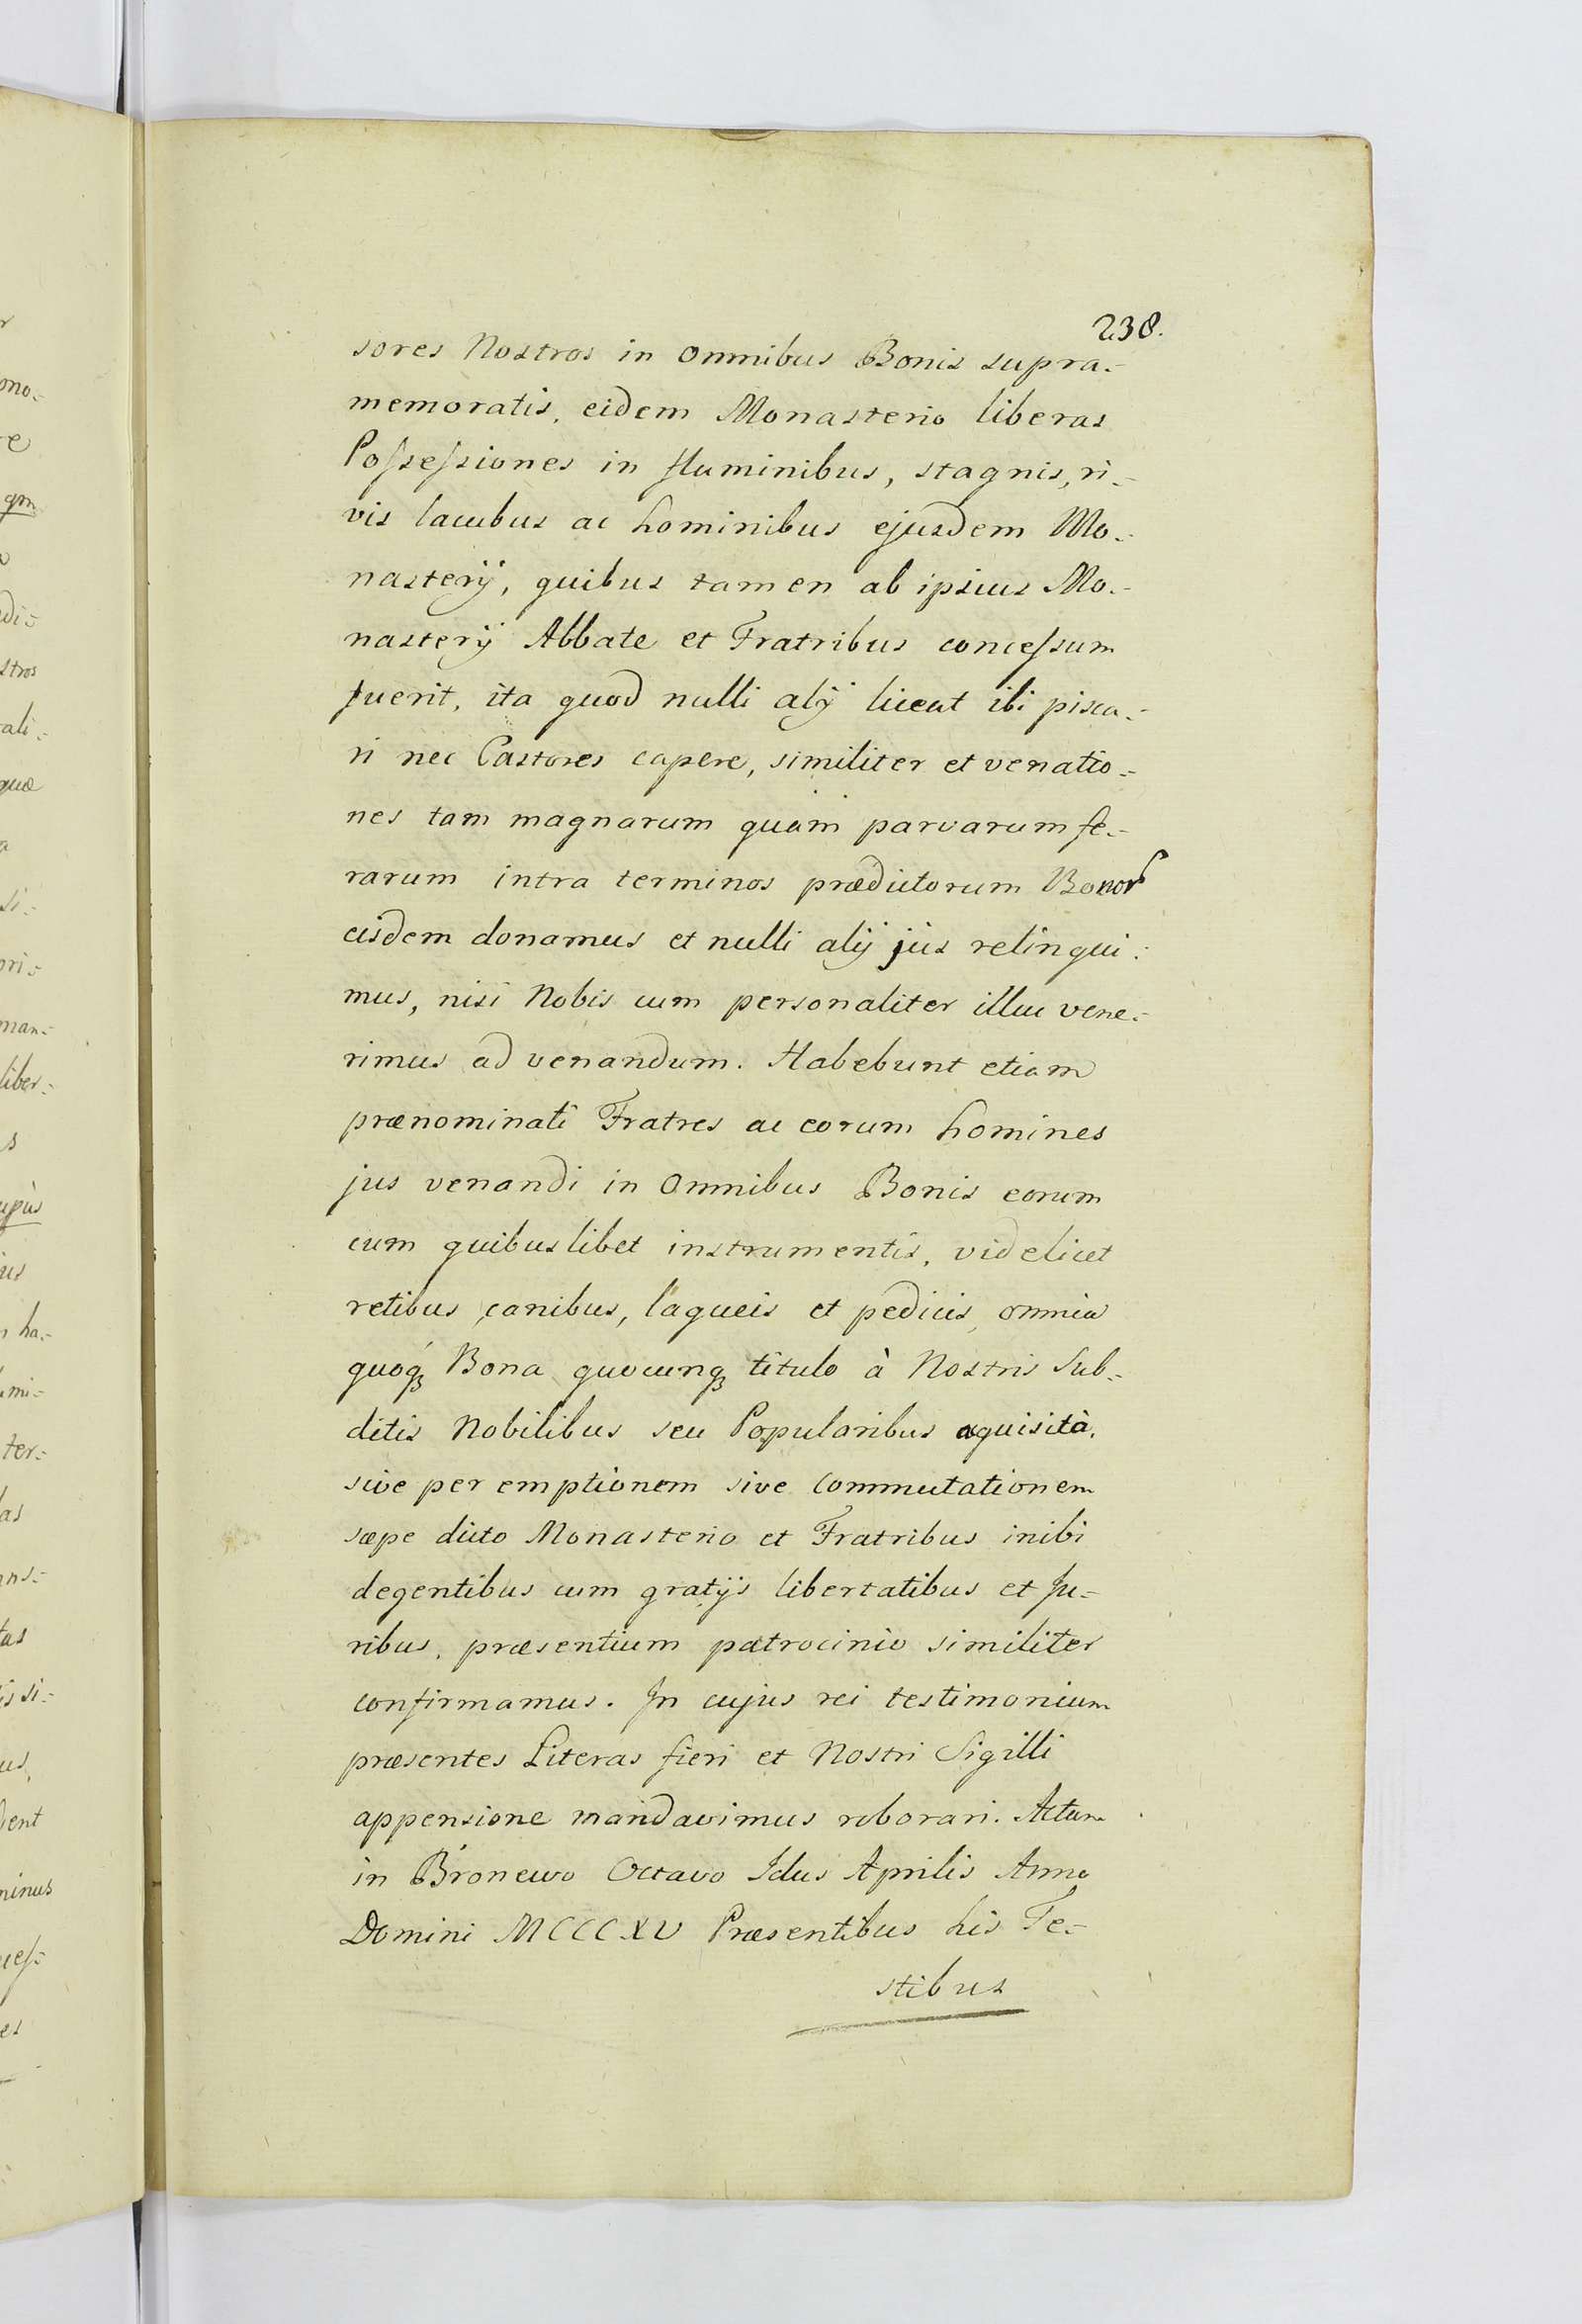 238.
sores Nostros in omnibus Bonis supra-
memoratis, eidem Monasterio liberas
Poſseſsiones in fluminibus, stagnis, ri-
vis lacubus ac hominibus ejusdem Mo-
nasterij, quibus tamen ab ipsius Mo-
nasterij Abbate et Fratribus conceſsum
fuerit, ita quod nulli alij liceat ibi pisca-
ri nec Castores capere, similiter et venatio-
nes tam magnarum quam parvarum fe-
rarum intra terminos prædictorum Bonor
eisdem donamus et nulli alij jus relinqui-
mus, nisi Nobis cum personaliter illuc vene-
rimus ad venandum. Habebunt etiam
prænominati Fratres ac eorum homines
jus venandi in omnibus Bonis eorum
cum quibuslibet instrumentis, videlicet
retibus, canibus, laqueis et pedicis, omnia
quoqꝫ Bona quocunqꝫ titulo à Nostris Sub-
ditis Nobilibus seu Popularibus aquisita,
sive per emptionem sive commutationem
sæpe dicto Monasterio et Fratribus inibi
degentibus cum gratijs libertatibus et Ju-
ribus, præsentium patrocinio similiter
confirmamus. In cujus rei testimonium
præsentes Literas fieri et Nostri Sigilli
appensione mandavimus roborari. Actum
in Bronewo Octavo Idus Aprilis Anno
Domini MCCCXV Præsentibus his Te-
stibus
mo-
re
qm
di-
stros
ali-
quæ
a
si-
ori-
man-
liber-
s
ius
ha-
mi-
ter-
las
ns-
tas
is si-
us,
dent
minus
ceſ-
es